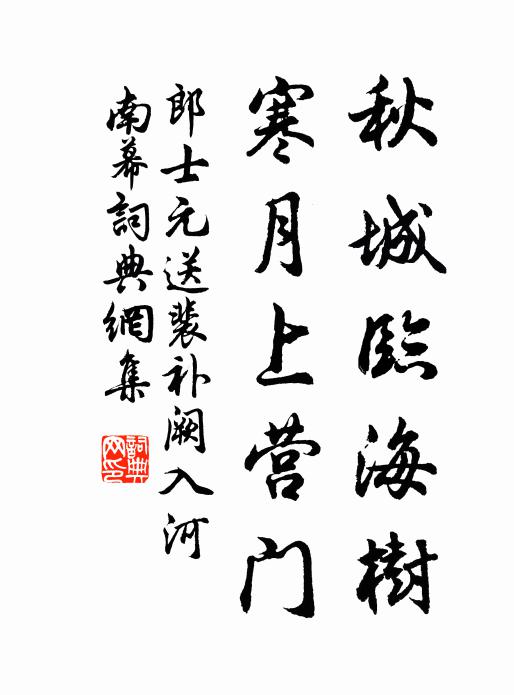 秋城臨海樹
寒月上营门
郎士元送裴补阙入河
南幕詞典網集
詞典網印